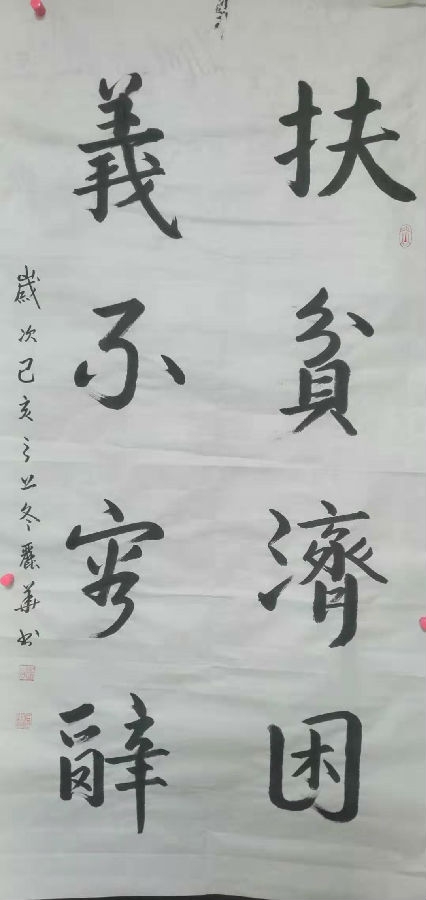 扶貧濟困
義不容辭
歲次己亥之上冬麗華书